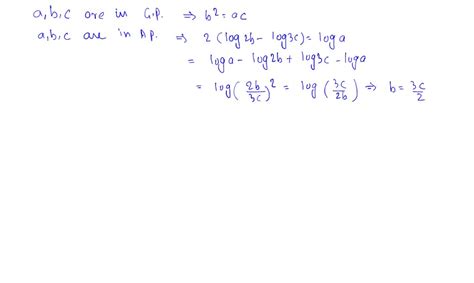 a,b,c are in G.P. ⇒ b² = ac
a,b,c are in A.P. ⇒ 2 (log2b - log3c) = loga
= loga - log2b + log3c - loga
= log(2b/3c)² = log(3c/2b) ⇒ b = 3c/2